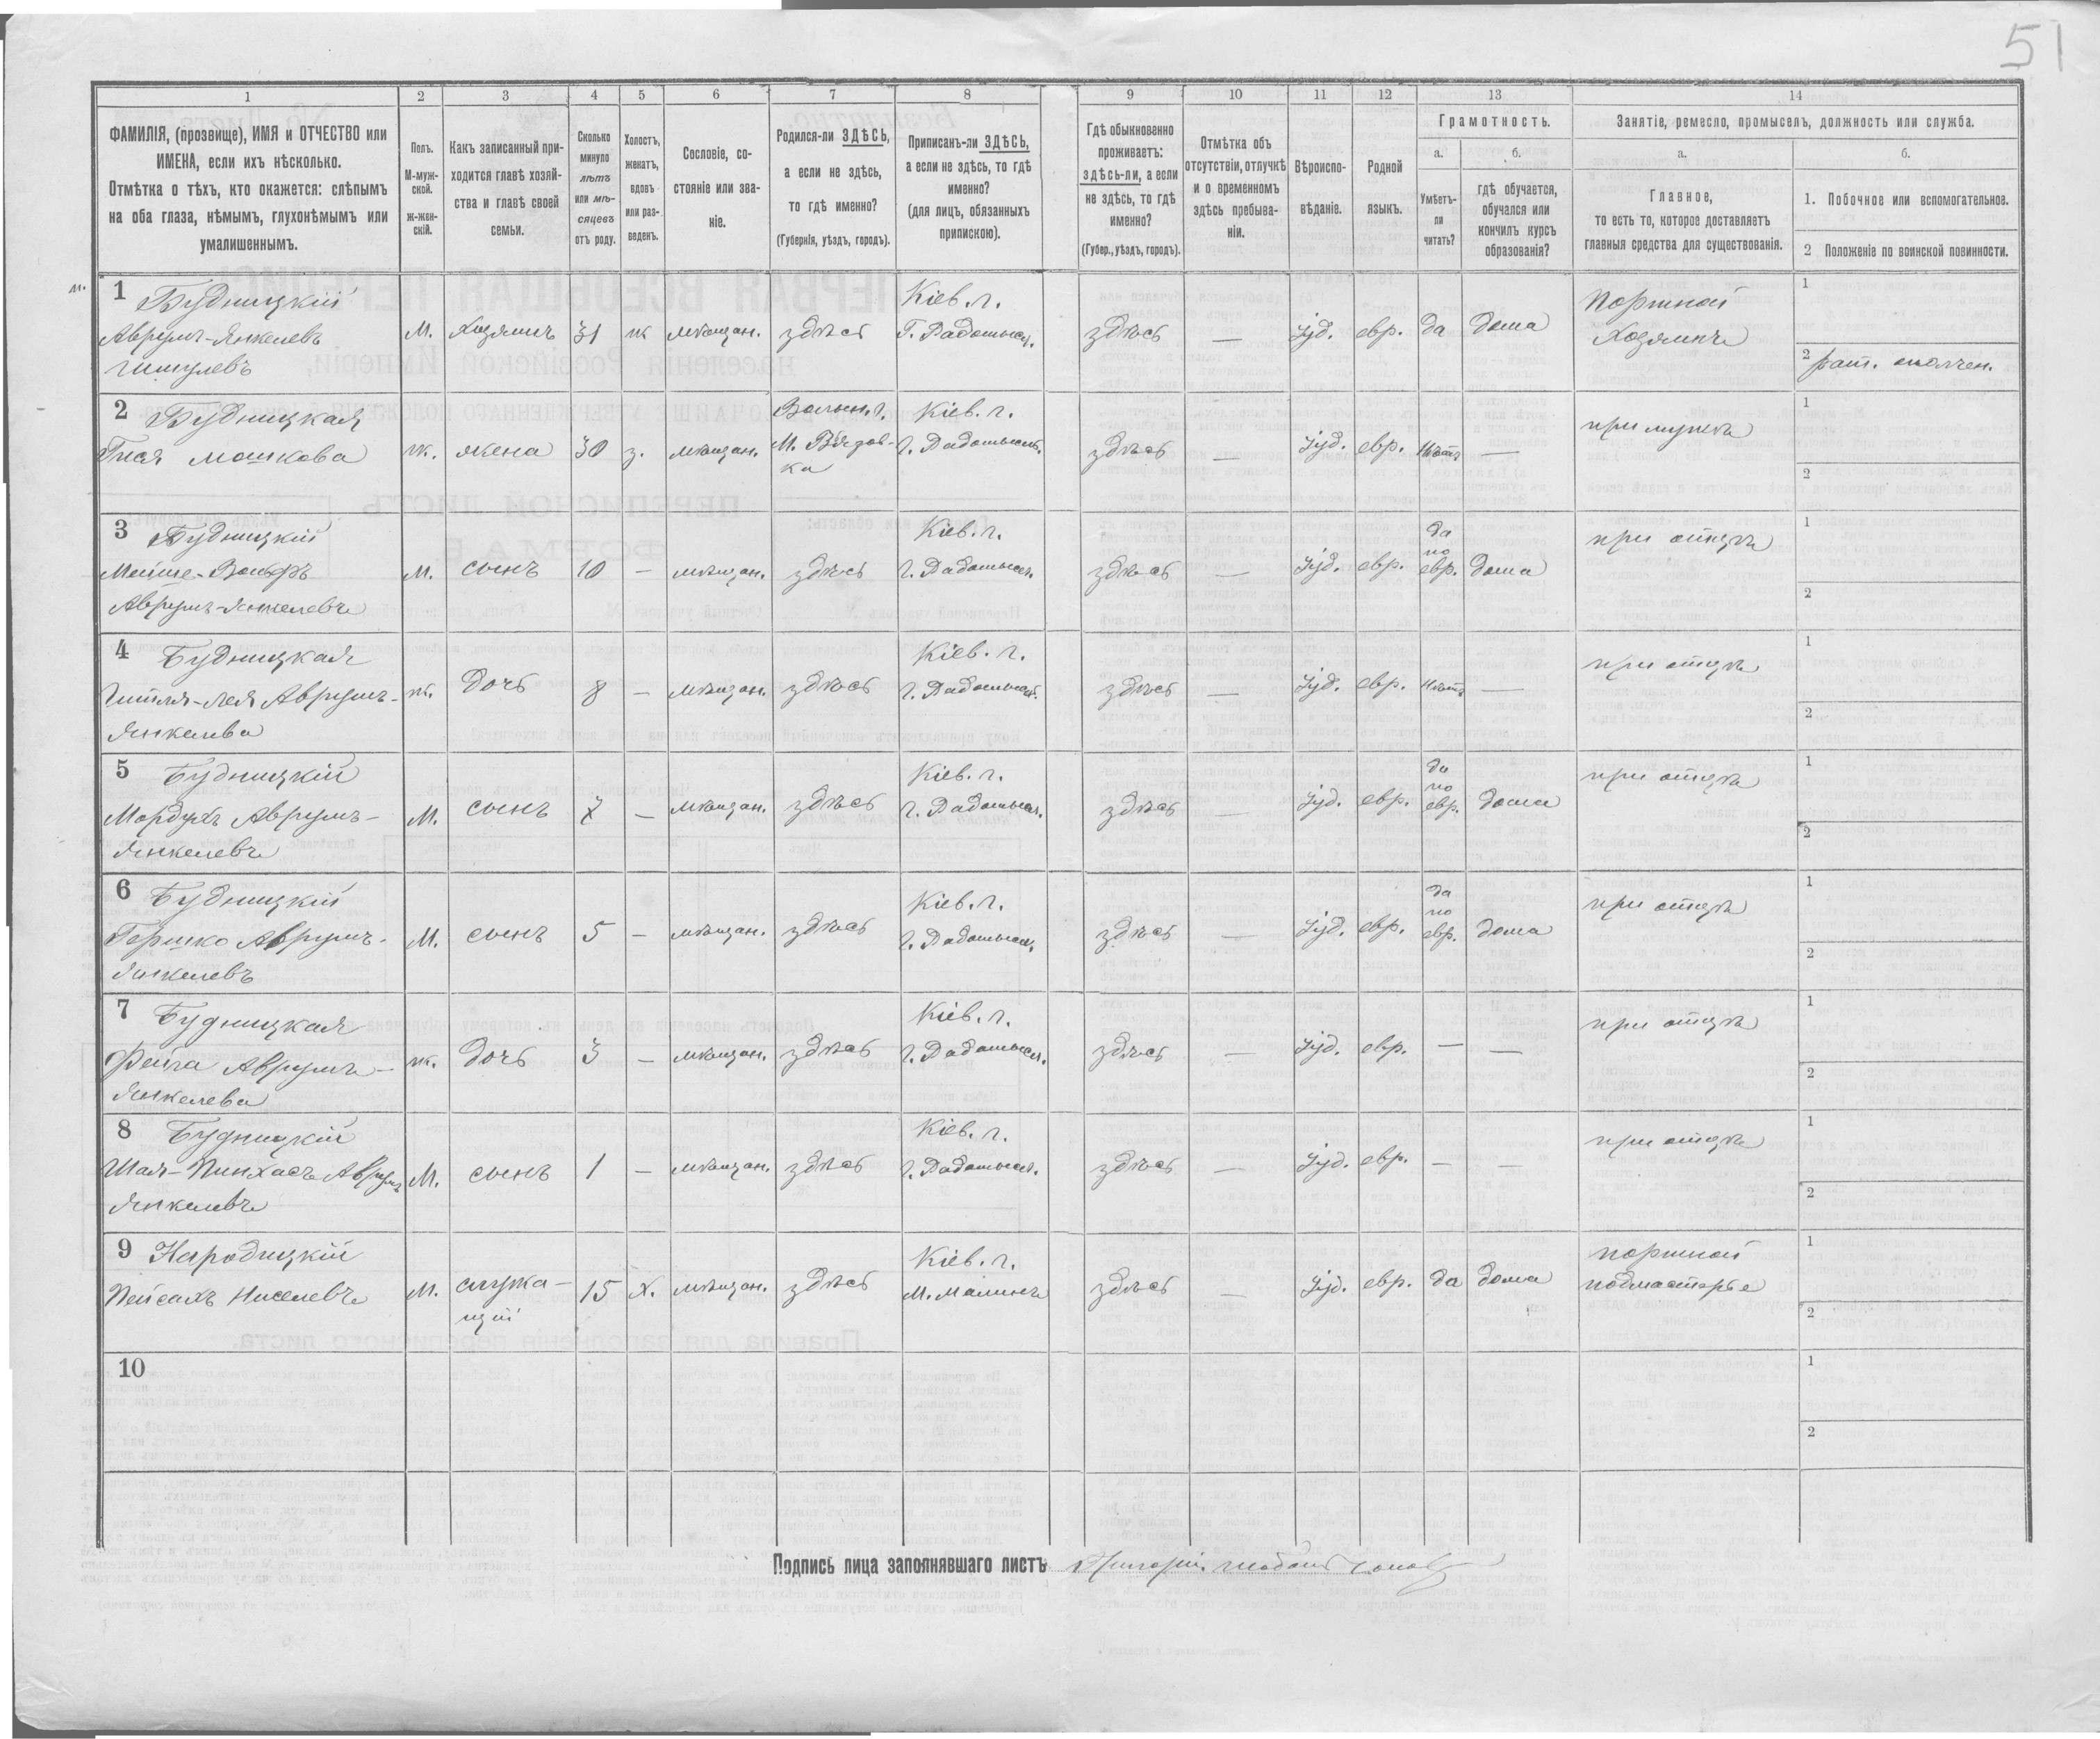 51
1 2 3 4 5 6 7 8 9 10 11 12 13 14
ФАМИЛІЯ, (прозвище), ИМЯ и ОТЧЕСТВО или
ИМЕНА, если ихъ нѣсколько.
Отмѣтка о тѣхъ, кто окажется: слѣпымъ
на оба глаза, нѣмымъ, глухонѣмымъ или
умалишеннымъ.
Полъ.
М-муж-
ской.
ж-жен-
скій.
Какъ записанный при-
ходится главѣ хозяй-
ства и главѣ своей
семьи.
Сколько
минуло
лѣтъ
или мѣ-
сяцевъ
отъ роду.
Холостъ,
женатъ,
вдовъ
или раз-
веденъ.
Сословіе, со-
стояніе или зва-
ніе.
Родился-ли ЗДѢСЬ,
а если не здѣсь,
то гдѣ именно?
(Губернія, уѣздъ, городъ).
Приписанъ-ли ЗДѢСЬ,
а если не здѣсь, то гдѣ
именно?
(для лицъ, обязанныхъ
припискою).
Гдѣ обыкновенно
проживаетъ:
здѣсь-ли, а если
не здѣсь, то гдѣ
именно?
(Губер., уѣздъ, городъ).
Отмѣтка объ
отсутствіи, отлучкѣ
и о временномъ
здѣсь пребыва-
ніи.
Вѣроиспо-
вѣданіе.
Родной
языкъ.
Грамотность.
а.
Умѣетъ-
ли
читать?
б.
гдѣ обучается,
обучался или
кончилъ курсъ
образованія?
Занятіе, ремесло, промыселъ, должность или служба.
а.
Главное,
то есть то, которое доставляетъ
главныя средства для существованія.
б.
1. Побочное или вспомогательное.
2 Положеніе по воинской повинности.
1 Будницкій
Аврумъ-Янкелевъ
Шмулевъ
М. Хозяинъ 31 ж мѣщан. здѣсь
Кіев. г.
Г. Радомысл.
здѣсь — Іуд. евр. да дома
Портной
Хозяинъ
1
2 рат. ополчен.
2 Будницкая
Гися Мошкова
ж. жена 30 з. мѣщан.
Волын. г.
М. Вязов-
ка
Кіев. г.
г. Радомысл.
здѣсь — Іуд. евр. Нѣтъ —
при мужѣ
1
2
3 Будницкій
Мойше-Вольфъ
Аврумъ-Янкелевъ
М. сынъ 10 — мѣщан. здѣсь
Кіев. г.
г. Радомысл.
здѣсь — Іуд. евр.
да
по
евр. дома
при отцѣ
1
2
4 Будницкая
Гитля-Лея Аврумъ-
Янкелева
ж. дочь 8 — мѣщан. здѣсь
Кіев. г.
г. Радомысл.
здѣсь — Іуд. евр. Нѣтъ —
при отцѣ
1
2
5 Будницкій
Мордухъ Аврумъ-
Янкелевъ
М. сынъ 7 — мѣщан. здѣсь
Кіев. г.
г. Радомысл.
здѣсь — Іуд. евр.
да
по
евр. дома
при отцѣ
1
2
6 Будницкій
Гершко Аврумъ-
Янкелевъ
М. сынъ 5 — мѣщан. здѣсь
Кіев. г.
г. Радомысл.
здѣсь — Іуд. евр.
да
по
евр. дома
при отцѣ
1
2
7 Будницкая
Фейга Аврумъ-
Янкелева
ж. дочь 3 — мѣщан. здѣсь
Кіев. г.
г. Радомысл.
здѣсь — Іуд. евр. — —
при отцѣ
1
2
8 Будницкій
Шая-Пинхасъ Аврумъ
Янкелевъ
М. сынъ 1 — мѣщан. здѣсь
Кіев. г.
г. Радомысл.
здѣсь — Іуд. евр. — —
при отцѣ
1
2
9 Народицкій
Пейсахъ Ниселевъ
М. служа-
щій
15 х. мѣщан. здѣсь
Кіев. г.
М. Малинъ
здѣсь — Іуд. евр. да дома
портной
подмастерье
1
2
10
1
2
Подпись лица заполнявшаго листъ